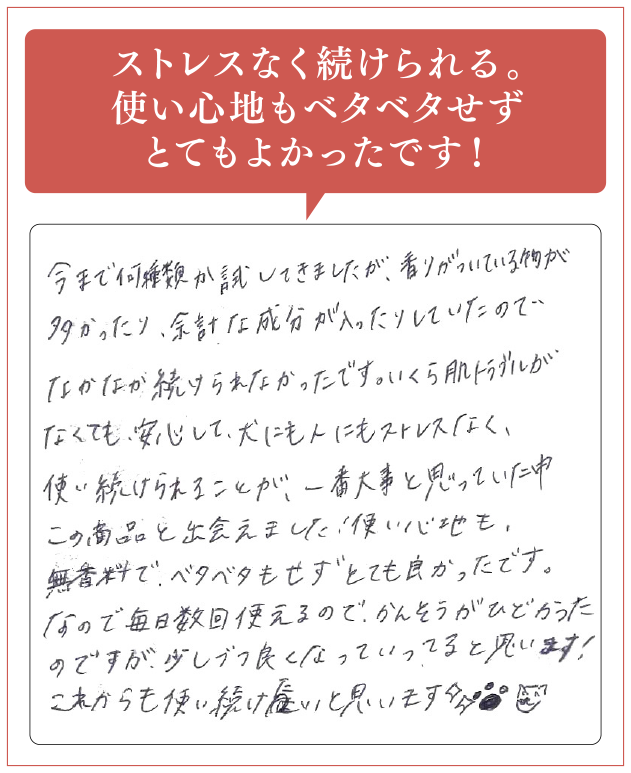 ストレスなく続けられる。
使い心地もベタベタせず
とてもよかったです！
今まで何種類か試してきましたが、香りがついている物が
多かったり、余計な成分が入ったりしていたので
なかなか続けられなかったです。いくら肌トラブルが
なくても、安心して、犬にも人にもストレスなく、
使い続けられることが、一番大事と思っていた中
この商品と出会えました！使い心地も、
無香料で、ベタベタもせずとても良かったです。
なので毎日数回使えるので、かんそうがひどかった
のですが、少しづつ良くなっていってると思います！
これからも使い続けいと思います